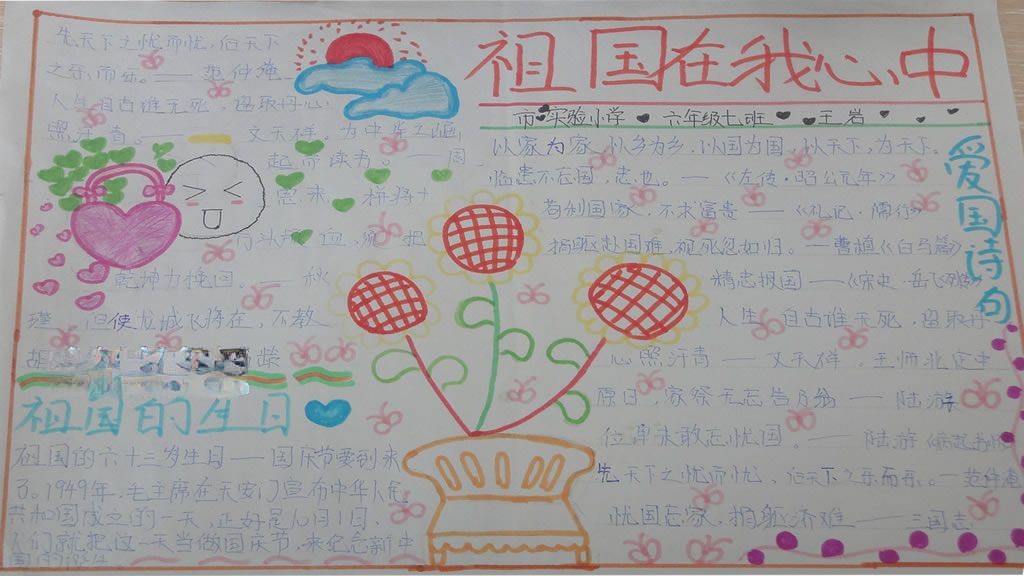 祖国在我心中
市实验小学 六年级十一班 王岩
先天下之忧而忧，后天下
之乐而乐。——范仲淹
人生自古谁无死，留取丹心
照汗青。——文天祥。为中华之崛
起而读书。——周
恩来 拼将十
万头颅血，须把
乾坤力挽回。——秋
瑾 但使龙城飞将在，不教
胡
祖国的生日
祖国的六十三岁生日——国庆节要到来
了。1949年，毛主席在天安门宣布中华人民
共和国成立的一天，正好是10月1日，
人们就把这一天当做国庆节，来纪念新中
爱国诗句
以家为家，以乡为乡，以国为国，以天下，为天下。
临患不忘国，忠也。——《左传·昭公元年》
苟利国家，不求富贵——《礼记·儒行》
捐躯赴国难，视死忽如归。——曹植《白马篇》
精忠报国——《宋史·岳飞列传》
人生自古谁无死，留取丹
心照汗青——文天祥 王师北定中
原日，家祭无忘告乃翁——陆游
位卑未敢忘忧国。——陆游《病起书怀》
先天下之忧而忧，后天下之乐而乐。——范仲淹
忧国忘家，捐躯济难——三国志